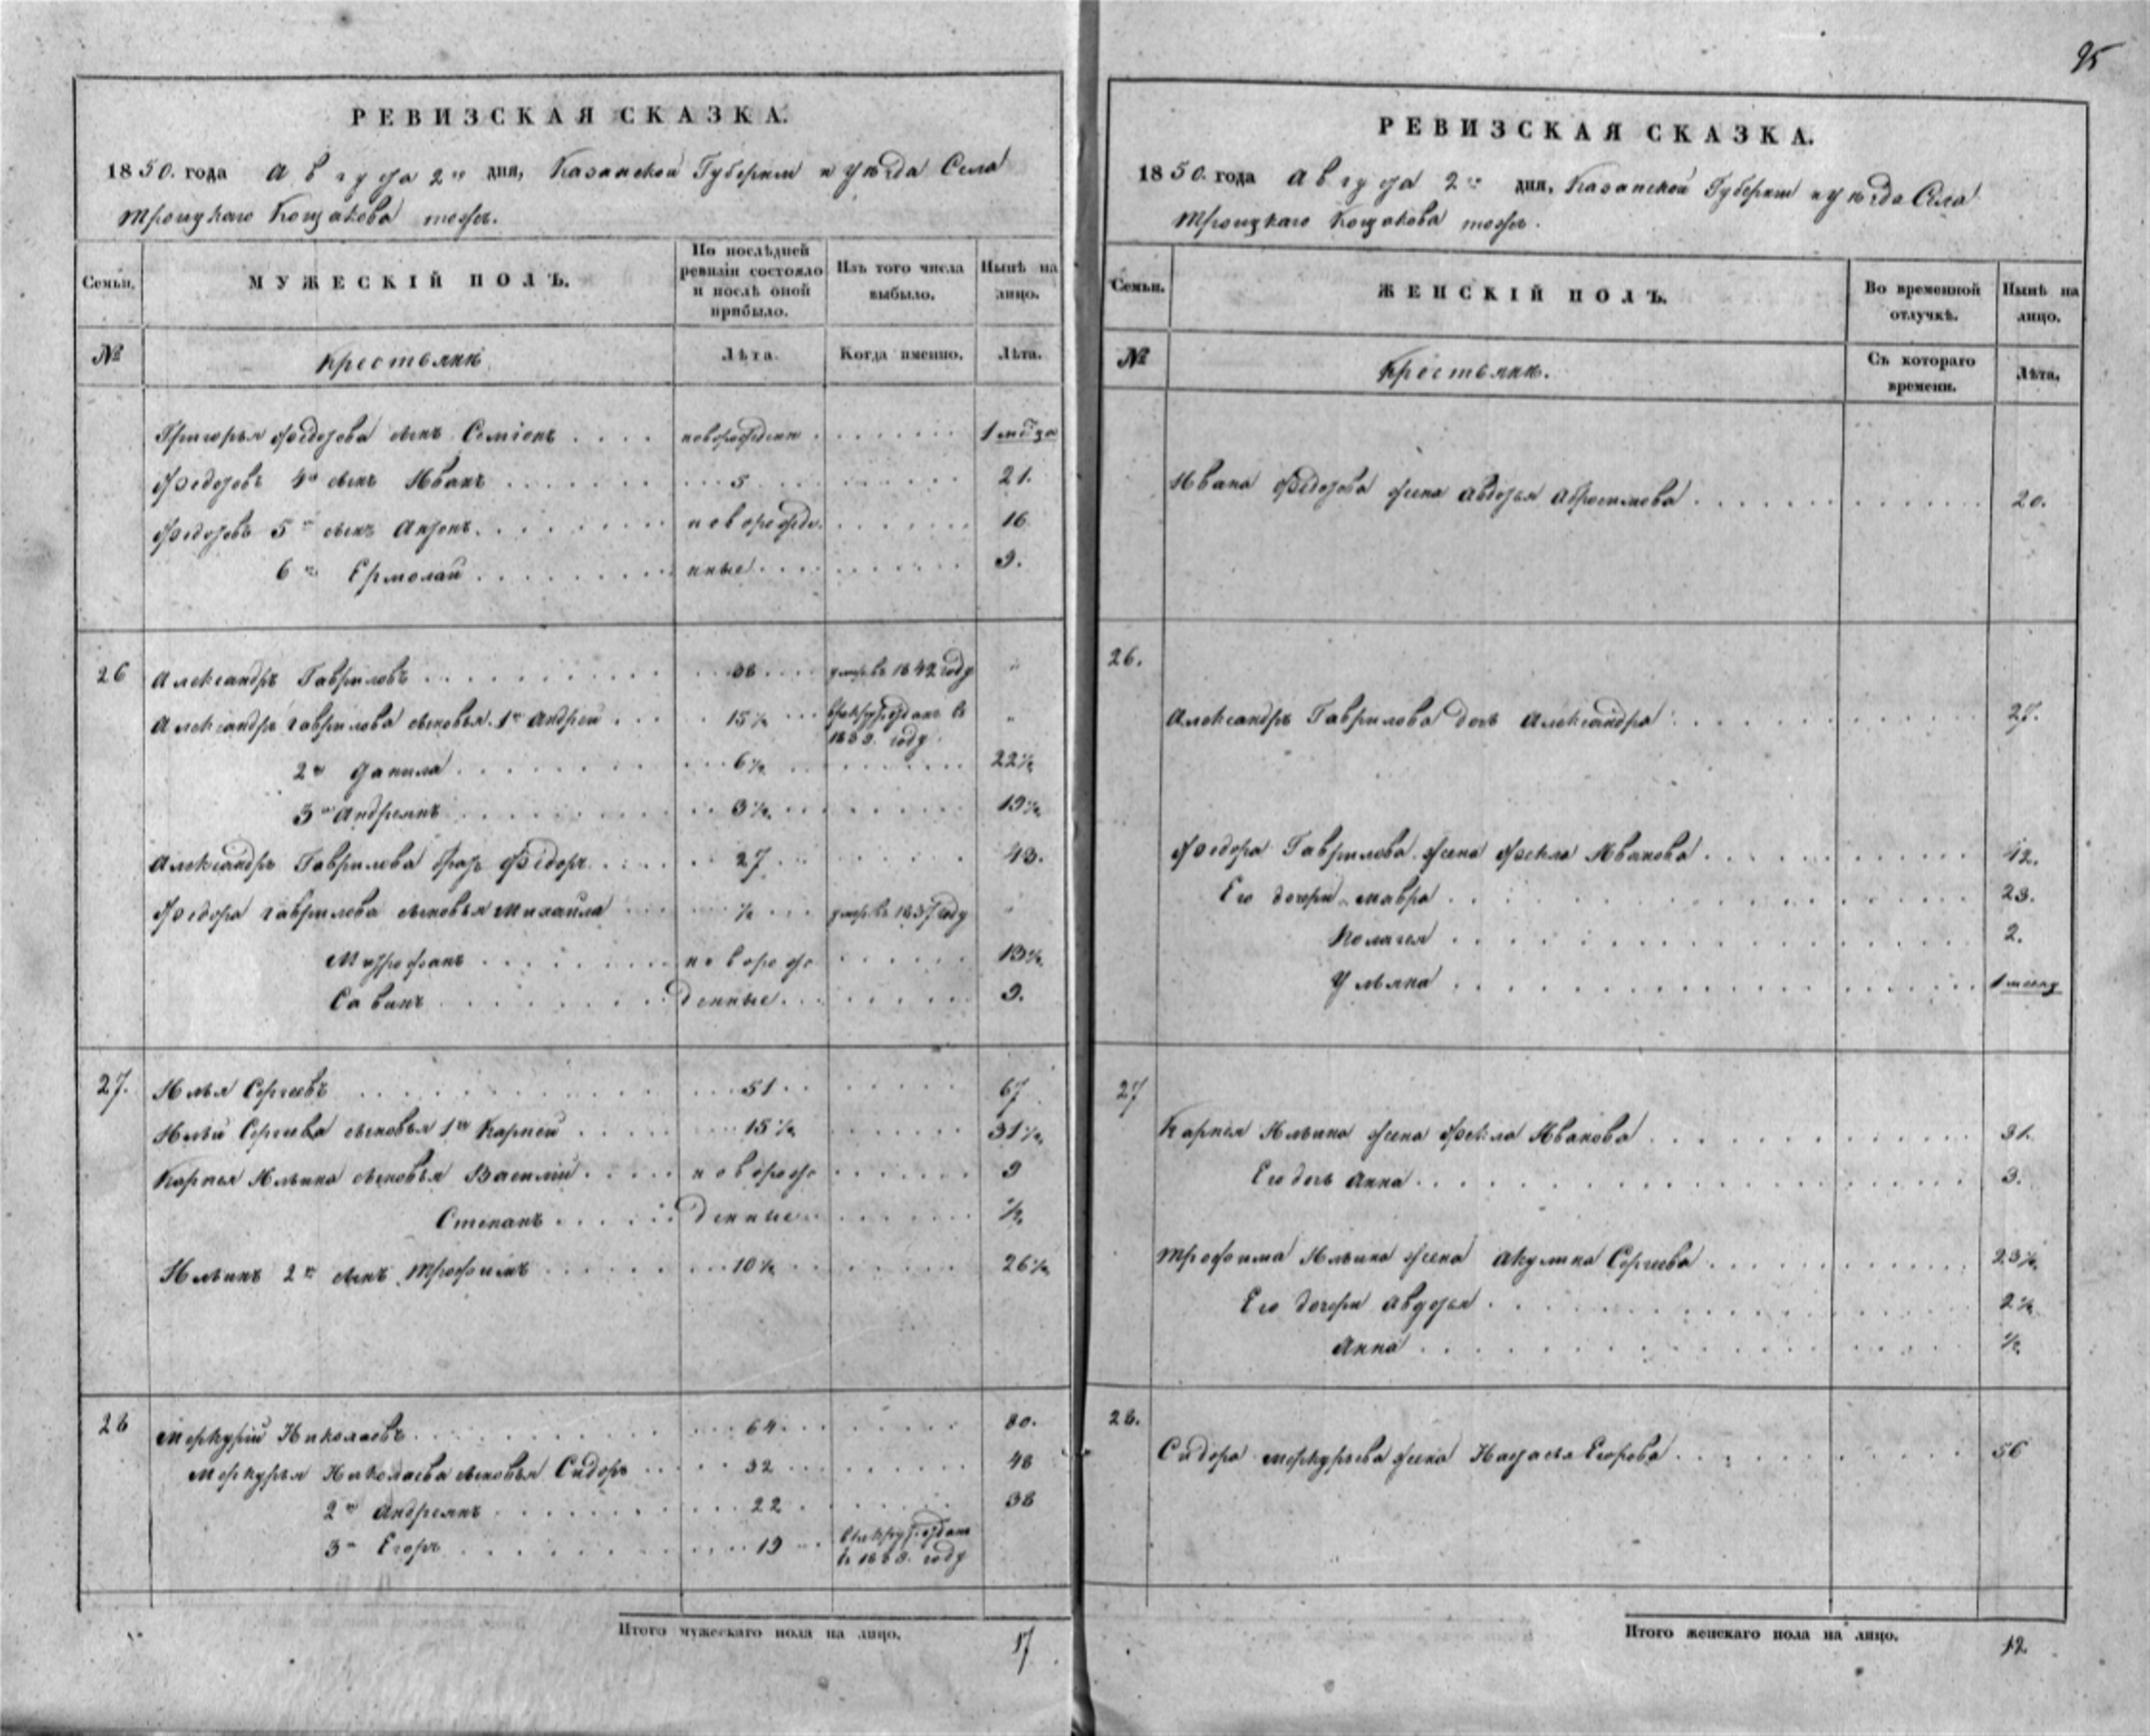 95
РЕВИЗСКАЯ СКАЗКА.
1850. года Августа 2го дня, Казанской Губернии и уѣзда Села
Троицкаго Кощакова тожъ.
Семьи.
МУЖЕСКІЙ ПОЛЪ.
По послѣдней ревизіи состояло и послѣ оной прибыло.
Изъ того числа выбыло.
Нынѣ на лицо.
№
Крестьянѣ
Лѣта.
Когда именно.
Лѣта.
Григорья Федорова сынъ Семіонъ новорожденн 1 мѣсяца
Федоровъ 4й сынъ Иванъ 5 21.
Федоровъ 5й сынъ Антонъ новорожде. 16
6й Ермолай нные 9.
26 Александръ Гавриловъ 38 умеръ в 1842 году "
Александръ Гаврилова сыновья 1й Андрей 15½ в рекруты отданъ в "
1839. году
2й Данила 6½ 22½
3й Андреянъ 3½ 19½
Александръ Гаврилова братъ Федоръ 27 43.
Федора Гаврилова сыновья Михайла ½ умеръ в 1837 году "
Митрофанъ новорож 13½
Савинъ денные 9.
27. Илья Сергеевъ 51 67
Ильи Сергеева сыновья 1й Карпей 15½ 31½
Карпея Ильина сыновья Василій новорож 9
Степанъ денные ½
Ильинъ 2й сынъ Трофимъ 10½ 26½
28 Меркурій Николаевъ 64 80.
Меркурья Николаева сыновья Сидоръ 32 48
2й Андреянъ 22 38
3й Егоръ 19 в рекруты отданъ
в 1838. году
Итого мужескаго пола на лицо. 17
РЕВИЗСКАЯ СКАЗКА.
1850. года Августа 2го дня, Казанской Губернии и уѣзда Села
Троицкаго Кощакова тожъ.
Семьи.
ЖЕНСКІЙ ПОЛЪ.
Во временной отлучкѣ.
Нынѣ на лицо.
№
Крестьянѣ.
Съ котораго времени.
Лѣта.
Ивана Федорова жена Авдотья Абросимова 20.
26.
Александръ Гаврилова дочь Александра 27.
Федора Гаврилова жена Фекла Иванова 42.
Его дочери Мавра 23.
Палагея 2.
Ульяна 1 месяц
27
Карпея Ильина жена Фекла Иванова 31.
Его дочь Анна 3.
Трофима Ильина жена Акулина Сергеева 23½
Его дочери Авдотья 2½
Анна ½
28.
Сидора Меркурьева жена Настасья Егорова 56
Итого женскаго пола на лицо. 12.